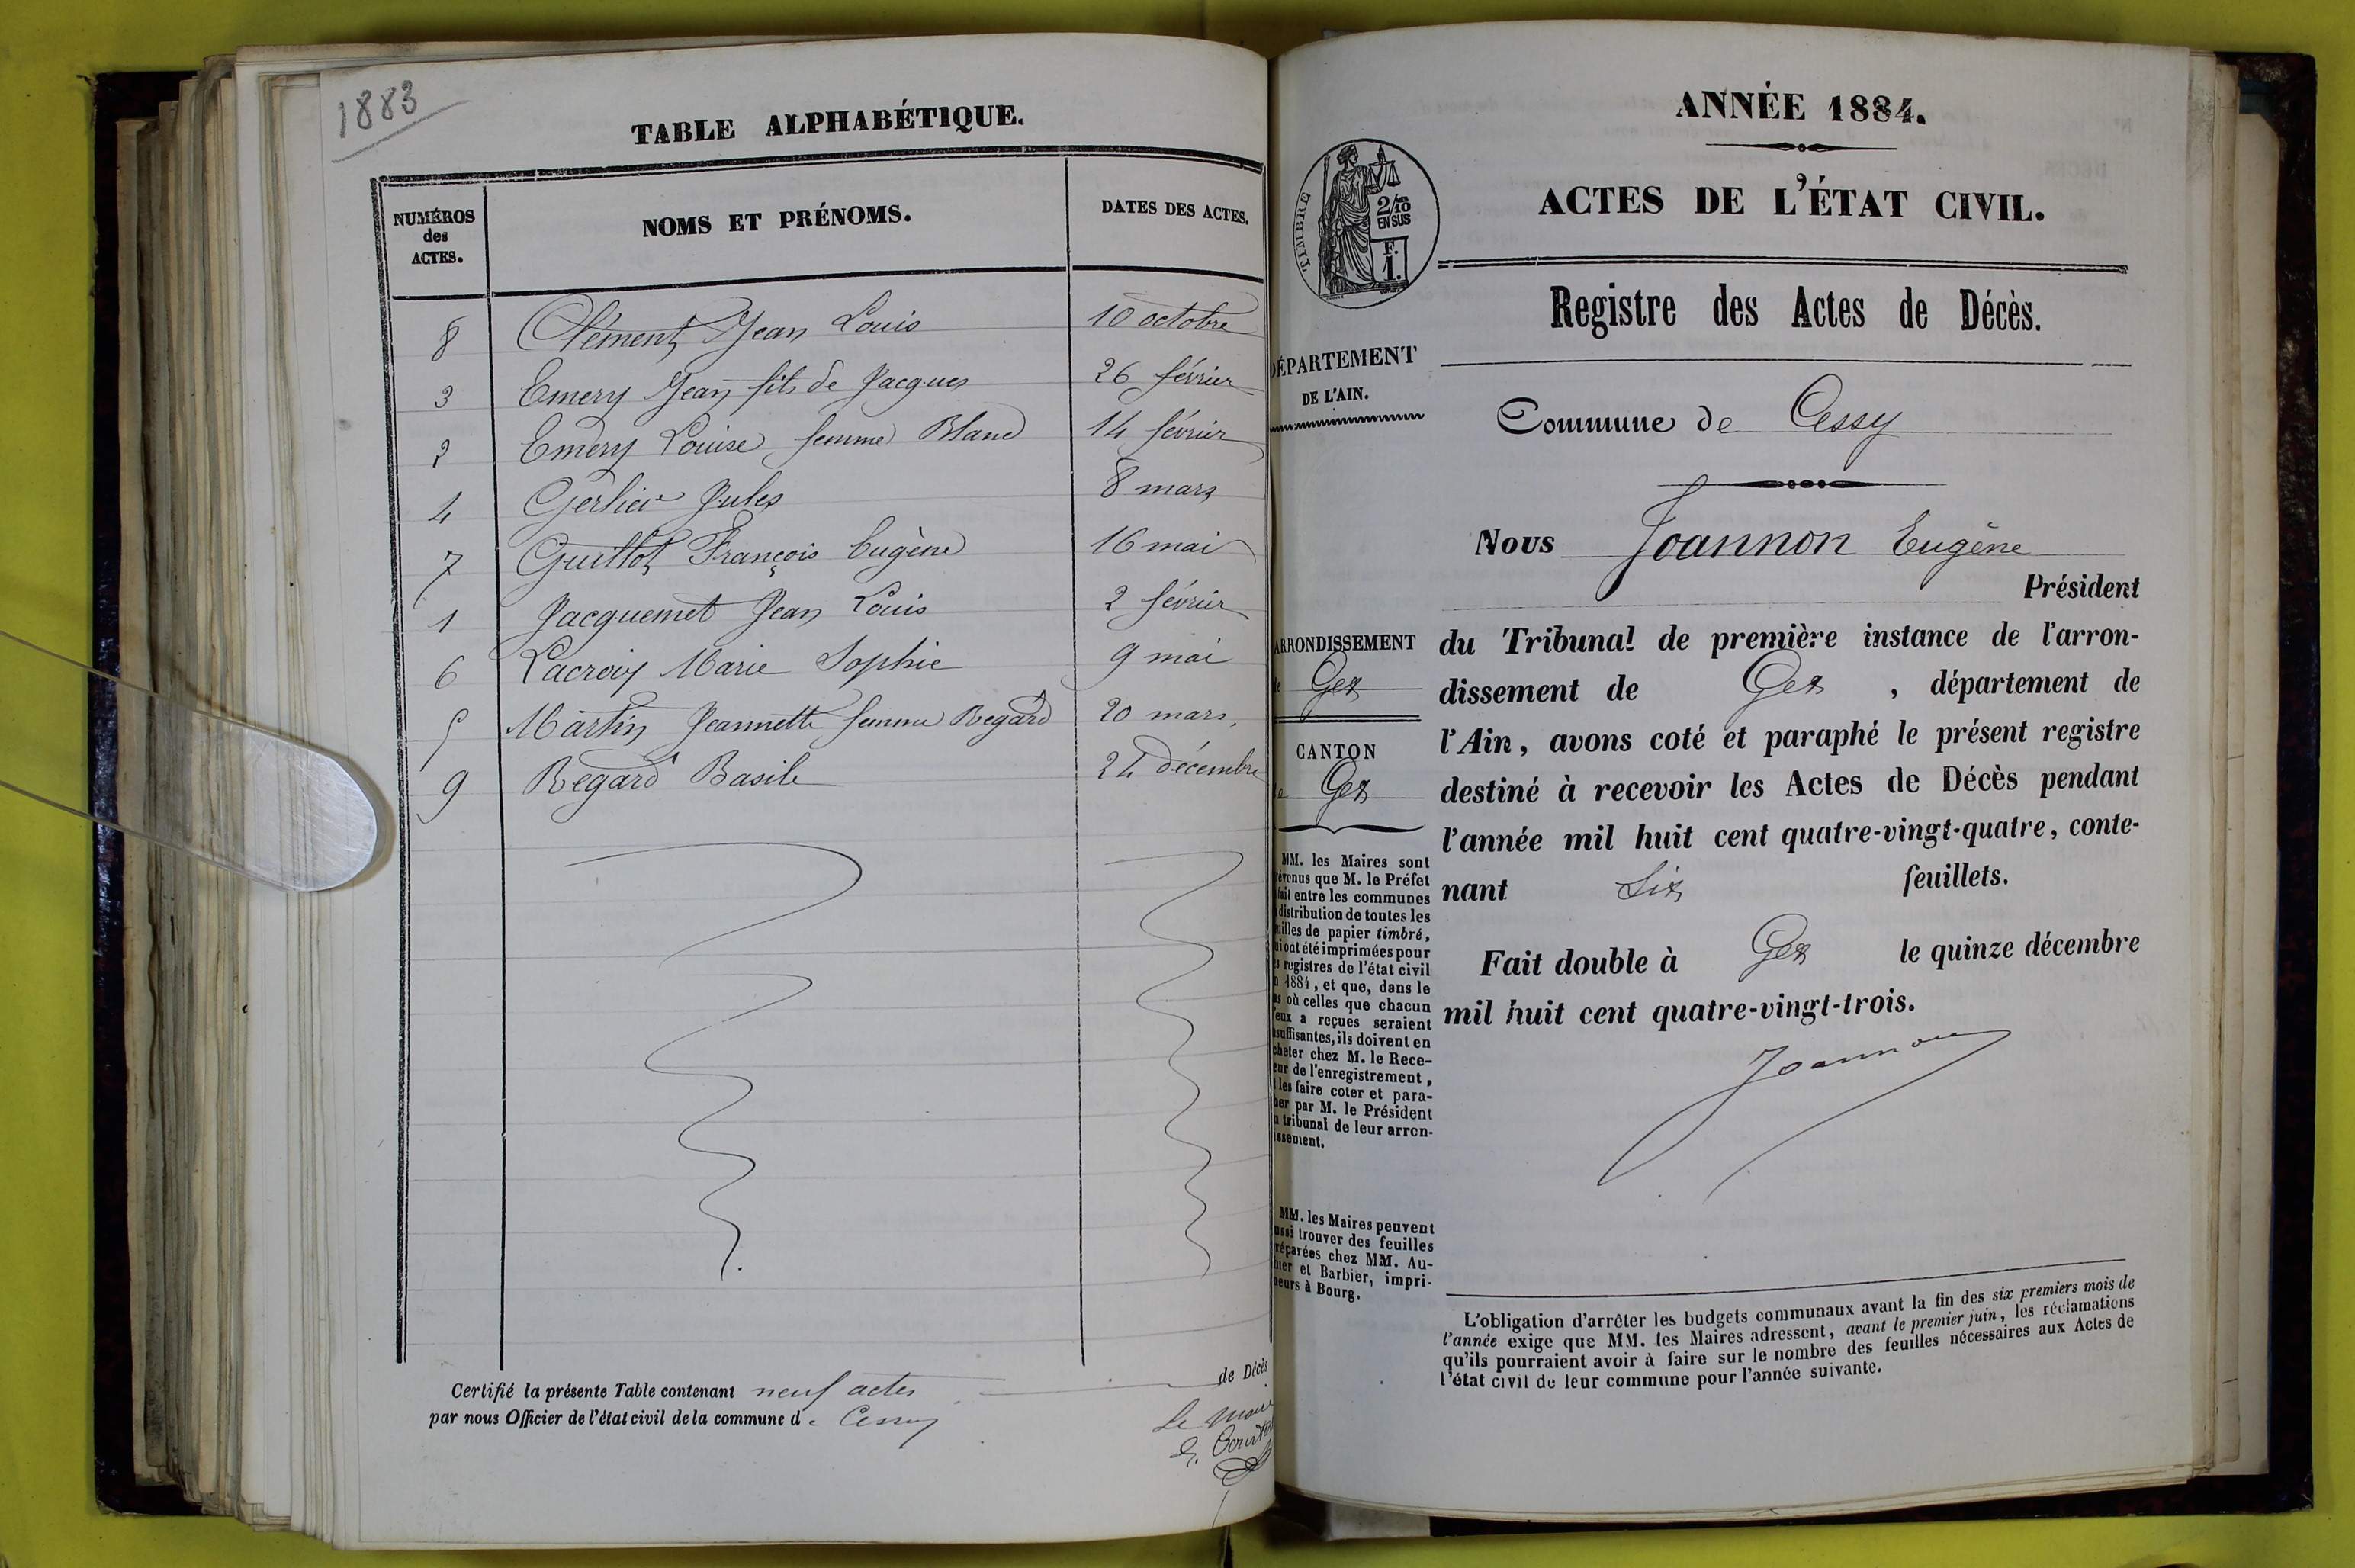 1883
TABLE ALPHABÉTIQUE.
NUMÉROS
des
ACTES.
NOMS ET PRÉNOMS.
DATES DES ACTES.
8 Clément Jean Louis 10 octobre
3 Emery Jean fils de Jacques 26 février
2 Emery Louise femme Blanc 14 février
4 Gerlier Jules 8 mars
7 Guillot François Eugène 16 mai
1 Jacquemet Jean Louis 2 février
6 Lacroix Marie Sophie 9 mai
5 Martin Jeannette femme Regard 20 mars
9 Regard Basile 24 décembre
Certifié la présente Table contenant neuf actes de Décès
par nous Officier de l'état civil de la commune de Cessy
Le Maire
ANNÉE 1884.
ACTES DE L'ÉTAT CIVIL.
TIMBRE
2/10
EN SUS
F.
1.
Registre des Actes de Décès.
DÉPARTEMENT
DE L'AIN.
Commune de Cessy
Nous Joannon Eugène
Président
ARRONDISSEMENT
de Gex
CANTON
de Gex
du Tribunal de première instance de l'arron-
dissement de Gex , département de
l'Ain, avons coté et paraphé le présent registre
destiné à recevoir les Actes de Décès pendant
l'année mil huit cent quatre-vingt-quatre, conte-
nant Six feuillets.
Fait double à Gex le quinze décembre
mil huit cent quatre-vingt-trois.
Joannon
MM. les Maires sont
prévenus que M. le Préfet
fait entre les communes
distribution de toutes les
feuilles de papier timbré,
qui ont été imprimées pour
les registres de l'état civil
en 1884, et que, dans le
cas où celles que chacun
d'eux a reçues seraient
insuffisantes, ils doivent en
acheter chez M. le Rece-
veur de l'enregistrement,
et les faire coter et para-
pher par M. le Président
du tribunal de leur arron-
dissement.
MM. les Maires peuvent
aussi trouver des feuilles
préparées chez MM. Au-
thier et Barbier, impri-
meurs à Bourg.
L'obligation d'arrêter les budgets communaux avant la fin des six premiers mois de
l'année exige que MM. les Maires adressent, avant le premier juin, les réclamations
qu'ils pourraient avoir à faire sur le nombre des feuilles nécessaires aux Actes de
l'état civil de leur commune pour l'année suivante.